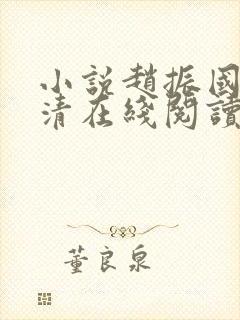 小說趙振國
清在綫閱讀
董良泉